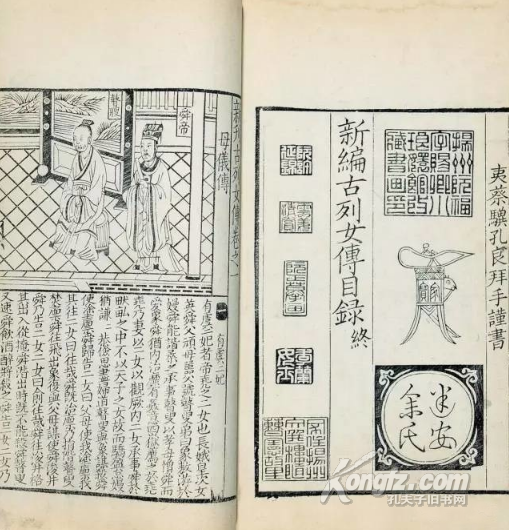 夷蔡驥孔良拜手謹書
揚州阮福
藏書畫印
建安
余氏
新編古列女傳目錄終
母儀傳
舜帝
有虞二妃
有虞二妃者帝堯之二女也長娥皇次女
英舜父頑母嚚父號瞽叟弟曰象敖游於嫚
舜能諧柔之承事瞽叟以孝母憎舜而
愛象舜猶內治靡有姦意四嶽薦之於
堯堯乃妻以二女以觀厥內二女承事舜於
畎畝之中不以天子之女故而驕盈怠嫚
猶謙謙恭儉思盡婦道瞽叟與象謀殺舜
使塗廩舜歸告二女曰父母使我塗廩我
其往二女曰往哉舜既治廩乃捐階瞽叟
焚廩舜往飛出象復與父母謀使舜浚井
舜乃告二女二女曰俞往哉舜往浚井格
其出入從掩舜潛出時既不能殺舜瞽叟
又速舜飲酒醉將殺之舜告二女二女乃
Kongfz.com
孔夫子旧书网